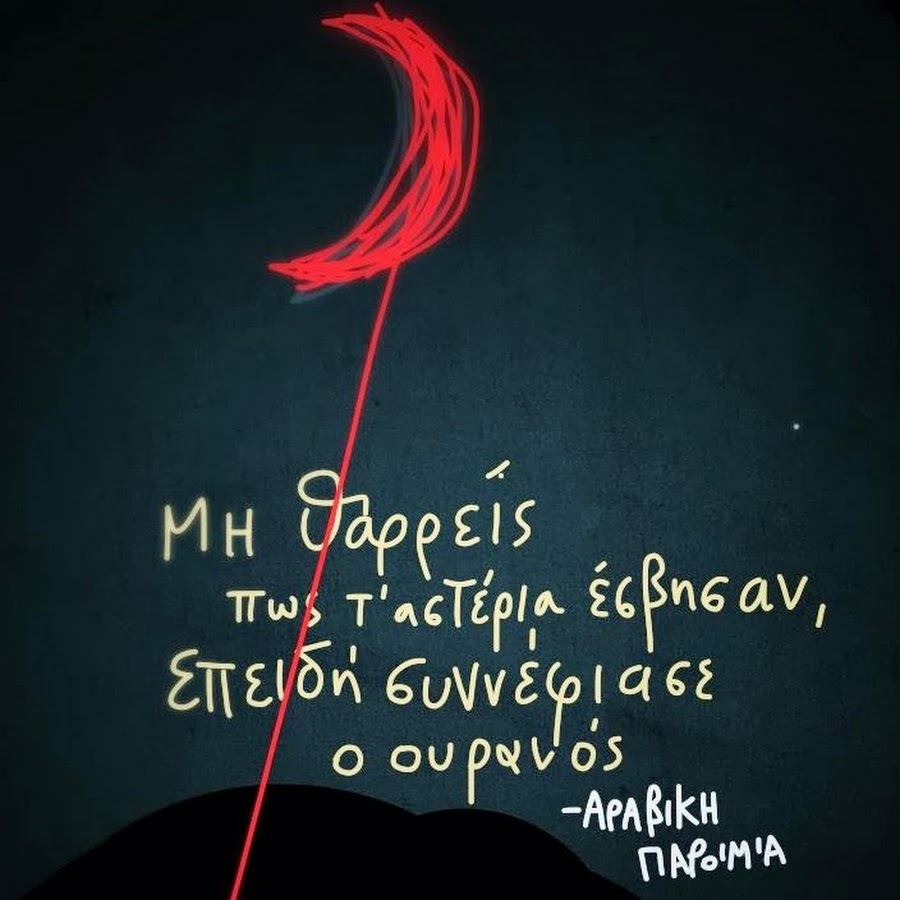 Μη θαρρείς
πως τ'αστέρια έσβησαν,
επειδή συννέφιασε
ο ουρανός
-ΑΡΑΒΙΚΗ
ΠΑΡΟΙΜΙΑ